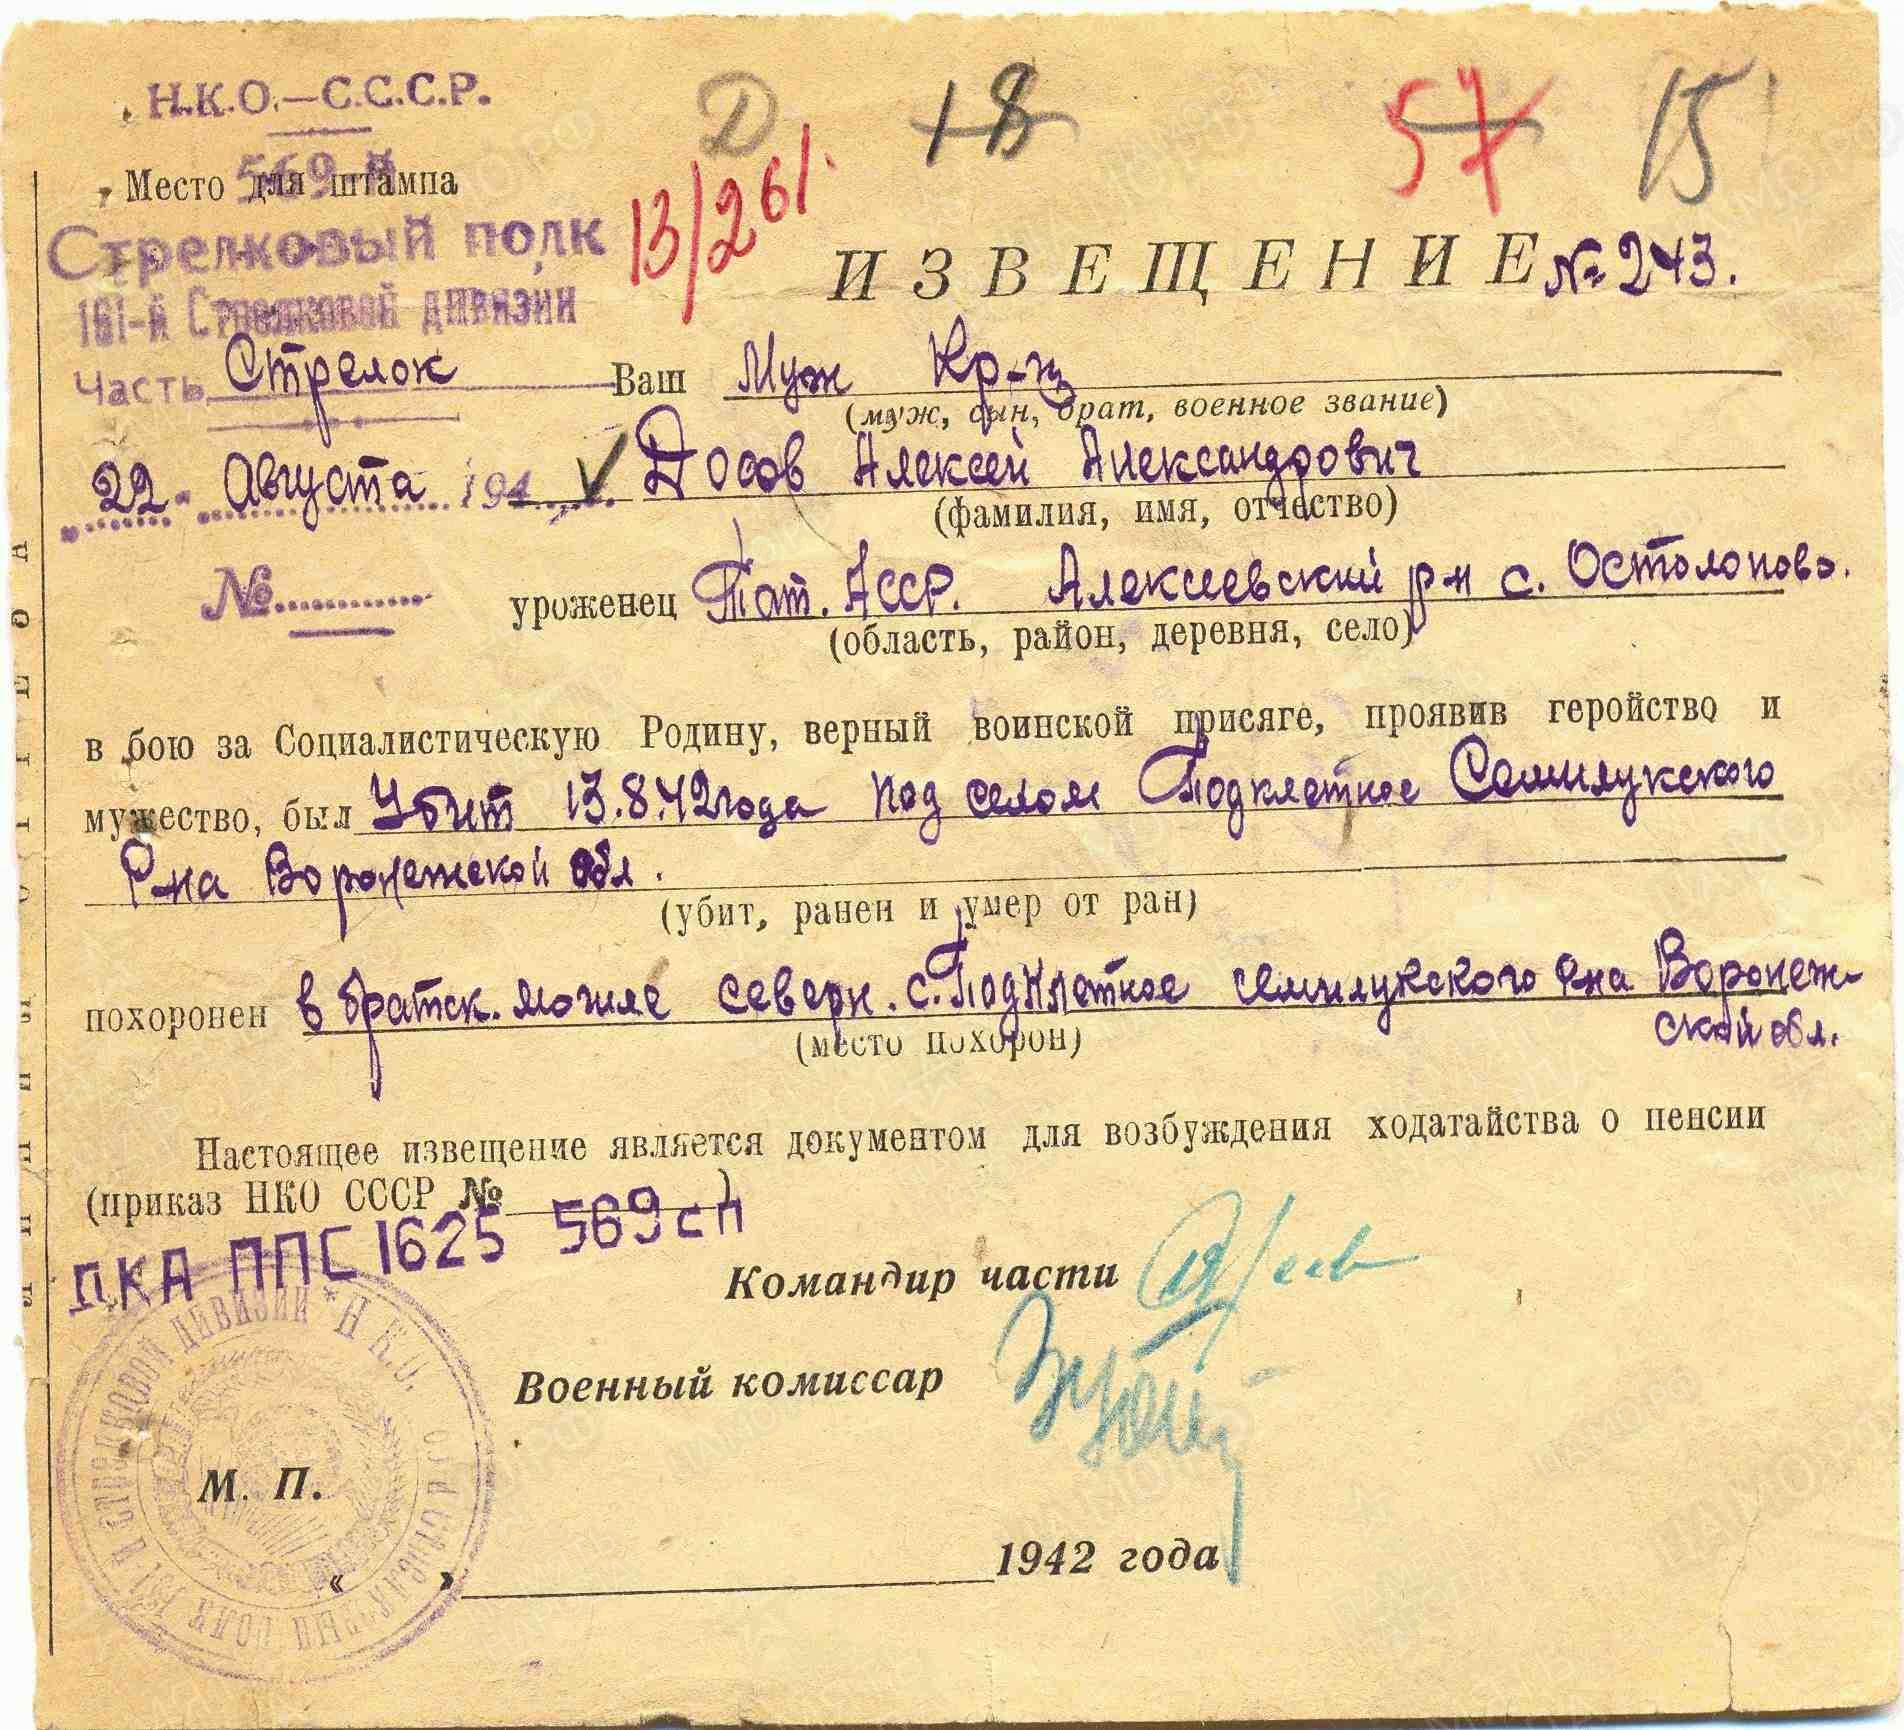 Н.К.О.—С.С.С.Р.
Д 18 57 15
569-й
Место для штампа
13/261.
Стрелковый полк
ИЗВЕЩЕНИЕ № 243.
161-й Стрелковой дивизии
Часть Стрелок Ваш Муж Кр-ц
(муж, сын, брат, военное звание)
22 Августа 194 Досов Алексей Александрович
(фамилия, имя, отчество)
№ уроженец Тат. АССР. Алексеевский р-н с. Остолопово.
(область, район, деревня, село)
в бою за Социалистическую Родину, верный воинской присяге, проявив геройство и
мужество, был Убит 13.8.42 года под селом Подклетное Семилукского
Р-на Воронежской обл.
(убит, ранен и умер от ран)
похоронен в братск. могиле северн. с. Подклетное семилукского р-на Воронеж-
ской обл.
(место похорон)
Настоящее извещение является документом для возбуждения ходатайства о пенсии
(приказ НКО СССР № )
ДКА ППС 1625 569 сп
Командир части
Военный комиссар
М. П.
« » 1942 года